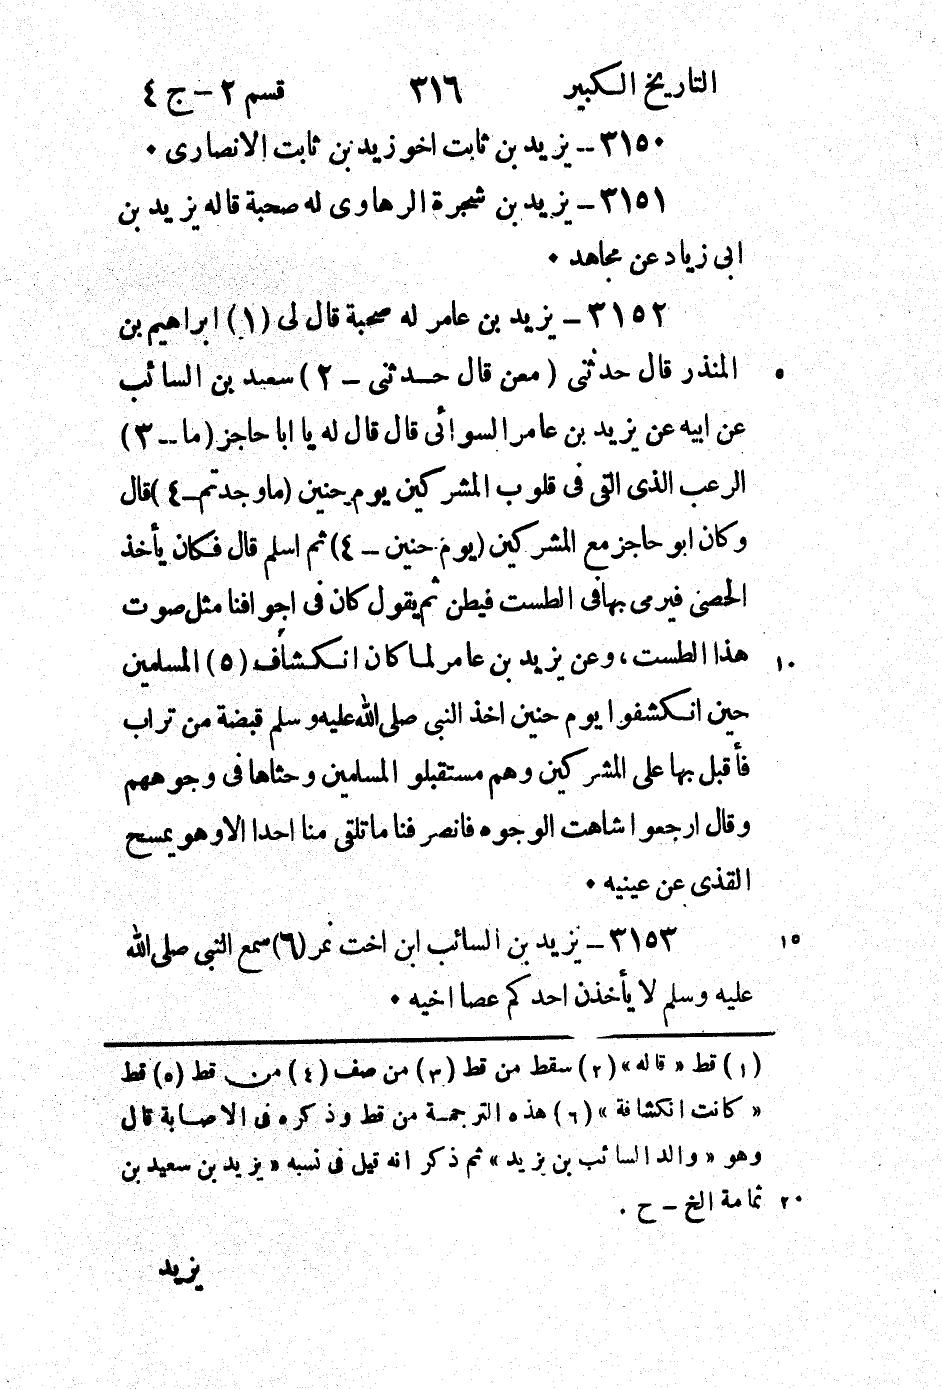 التاريخ الكبير ٣١٦ قسم ٢ - ج ٤
٣١٥٠ - يزيد بن ثابت اخو زيد بن ثابت الانصارى ٠
٣١٥١ - يزيد بن شجرة الرهاوى له صحبة قاله يزيد بن
ابى زياد عن مجاهد ٠
٣١٥٢ - يزيد بن عامر له صحبة قال لى (١) ابراهيم بن
المنذر قال حدثنى ( معن قال حدثنى - ٢ ) سعيد بن السائب ٥
عن ابيه عن يزيد بن عامر السوائى قال قال له يا ابا حاجز (ما - ٣)
الرعب الذى التى فى قلوب المشركين يوم حنين (ما وجدتم - ٤) قال
وكان ابو حاجز مع المشركين (يوم حنين - ٤) ثم اسلم قال فكان يأخذ
الحصى فيرمى بها فى الطست فيطن ثم يقول كان فى اجوافنا مثل صوت
هذا الطست، وعن يزيد بن عامر لما كان انكشاف (٥) المسلمين ١٠
حين انكشفوا يوم حنين اخذ النبى صلى الله عليه وسلم قبضة من تراب
فأقبل بها على المشركين وهم مستقبلو المسلمين وحثاها فى وجوههم
وقال ارجعوا شاهت الوجوه فانصرفنا ما تلقى منا احدا الا وهو يمسح
القذى عن عينيه ٠
٣١٥٣ - يزيد بن السائب ابن اخت نمر (٦) سمع النبى صلى الله ١٥
عليه وسلم لا يأخذن احدكم عصا اخيه ٠
(١) قط « قاله » (٢) سقط من قط (٣) من صف (٤) من قط (٥) قط
« كانت انكشافة » (٦) هذه الترجمة من قط وذكره فى الاصابة قال
وهو « والد السائب بن يزيد » ثم ذكر انه قيل فى نسبه « يزيد بن سعيد بن
ثمامة الخ - ح . ٢٠
يزيد